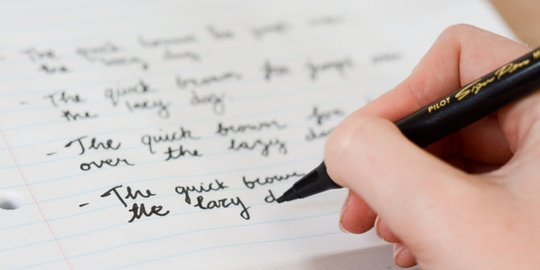 - The quick brown fox jumps over
the lazy dog
- The quick brown fox jumps over
the lazy dog.
- The quick brown fox
over the lazy do
- The quick brow
the lazy d
PILOT Sign Pen